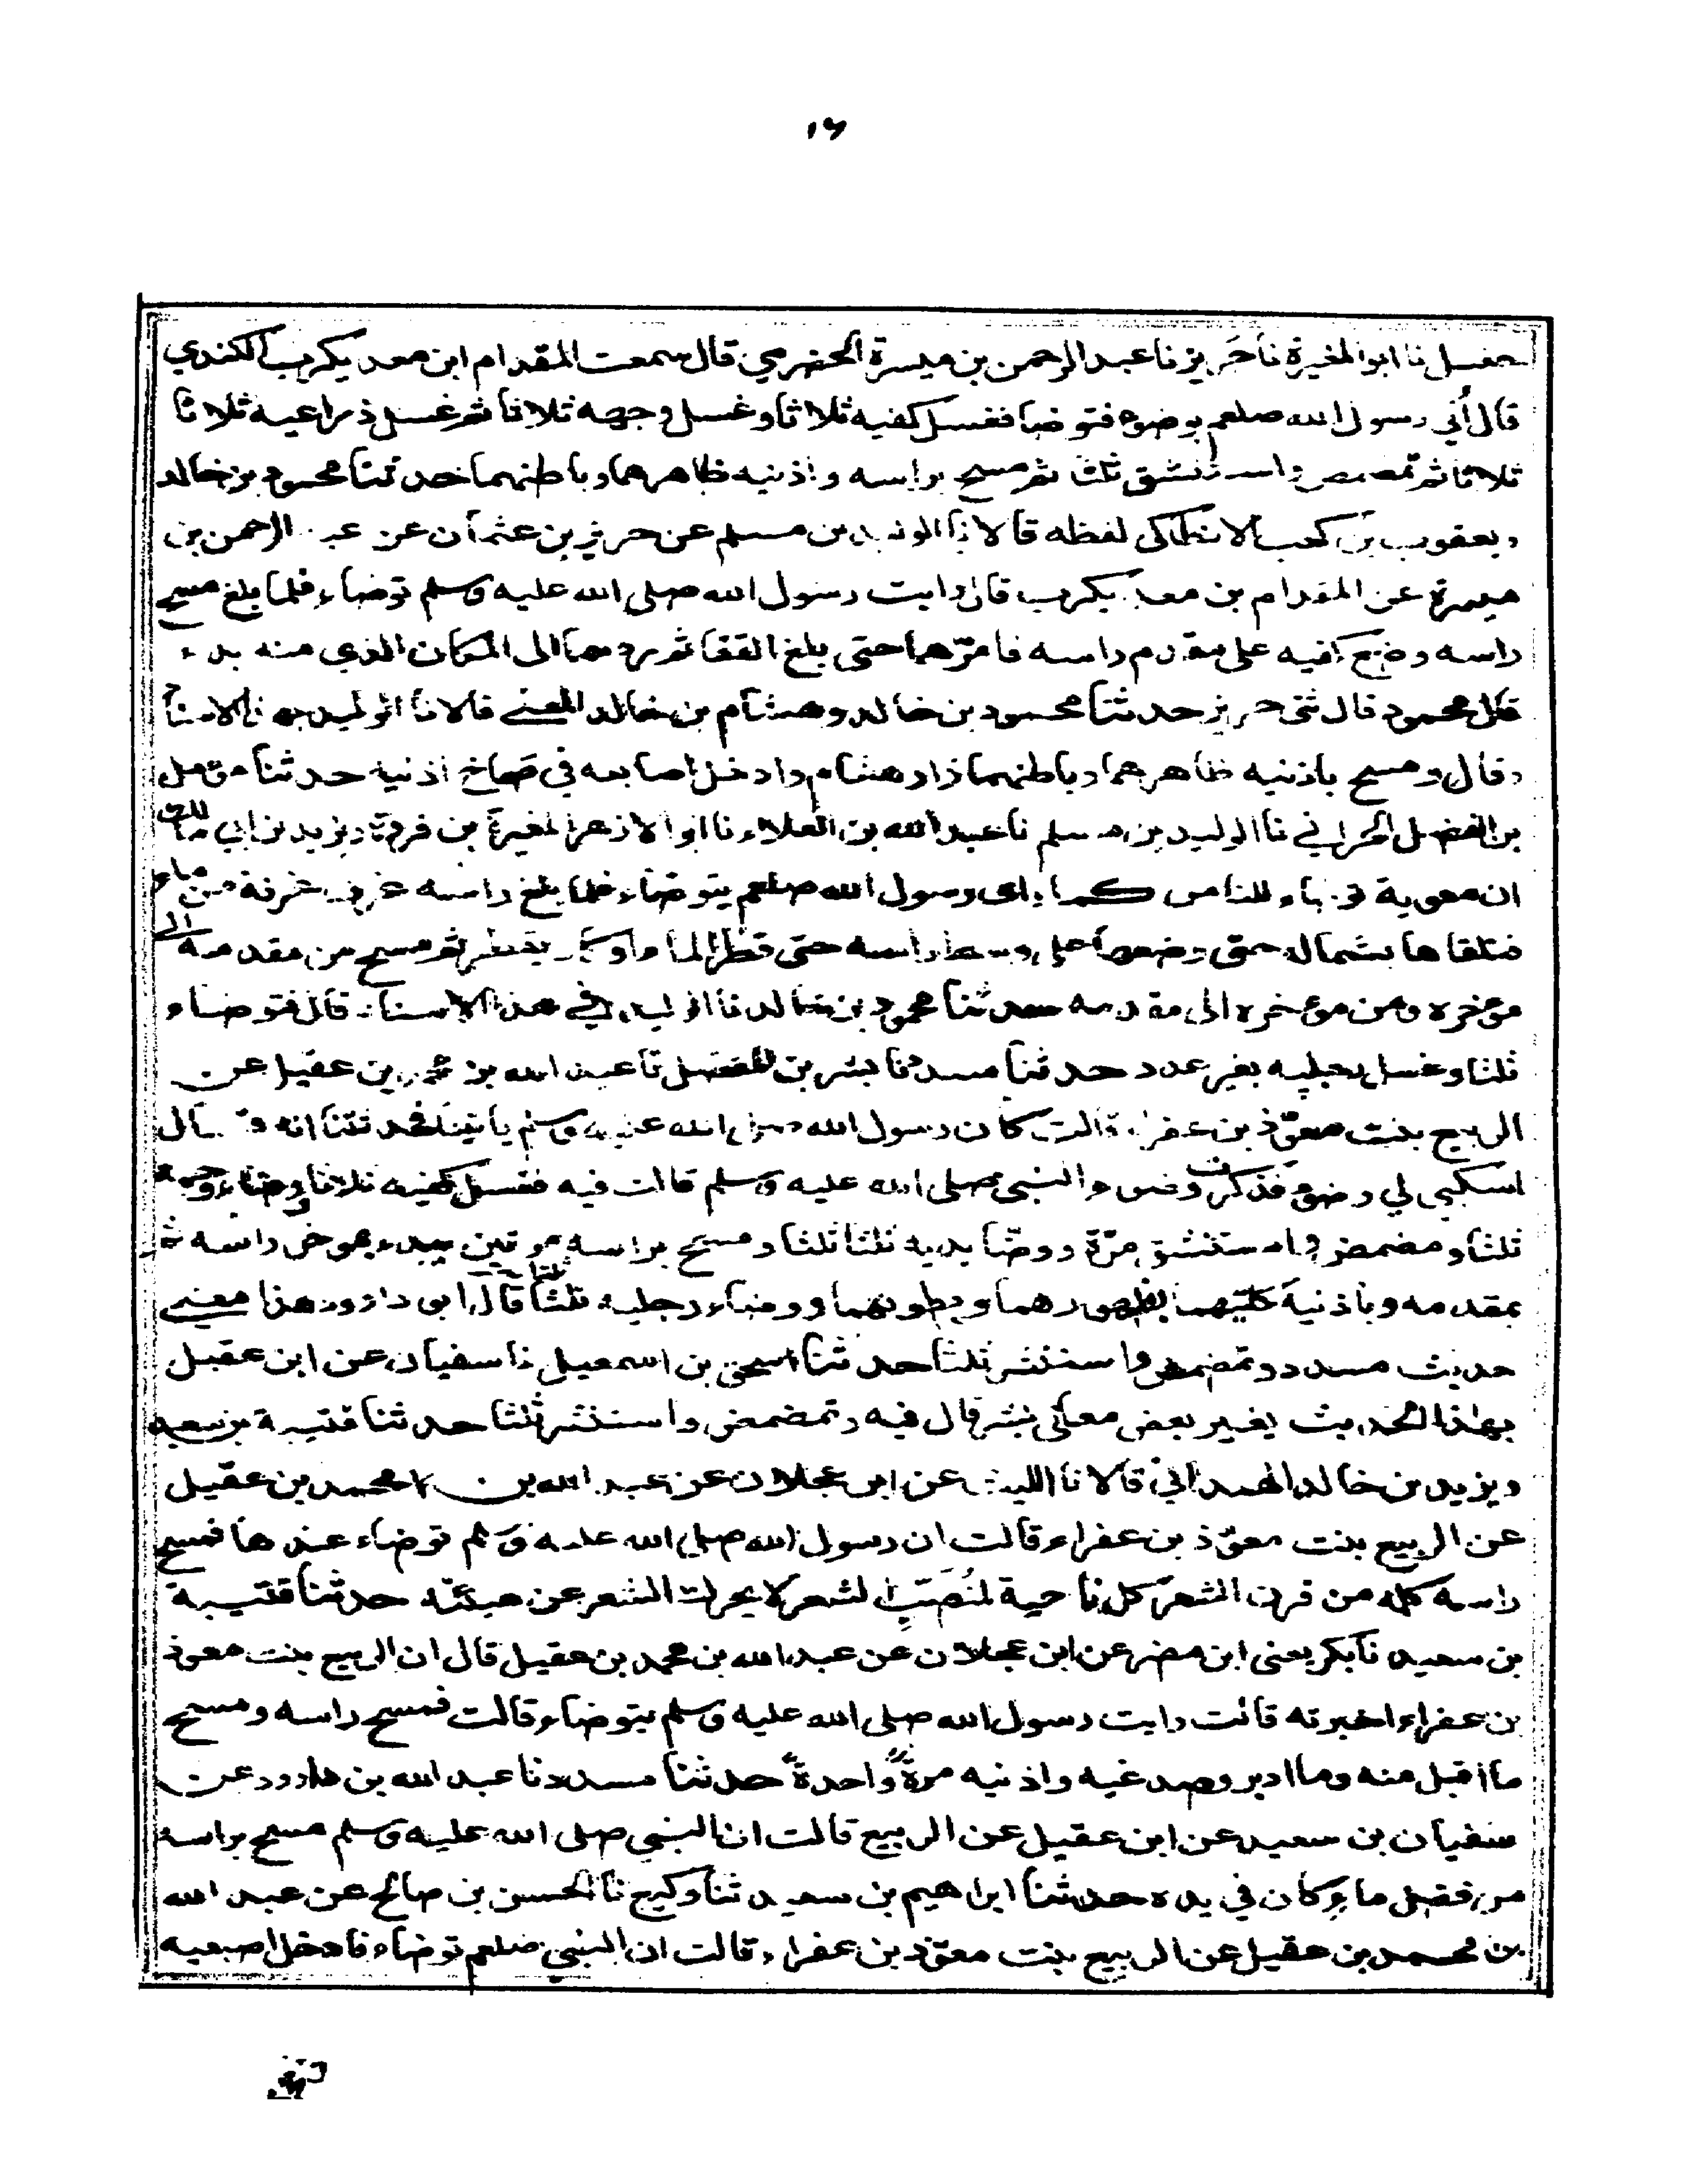 ١٦
حنبل نا ابو المغيرة نا حَريز نا عبد الرحمن بن ميسرة الحضرمي قال سمعت المقدام ابن معد يكرب الكندي
قال أُتي رسول الله صلعم بوضوء فتوضأ فغسل كفيه ثلاثا وغسل وجهه ثلاثا ثم غسل ذراعيه ثلاثا
ثلاثا ثم تمضمض واستنشق ثلثا ثم مسح براسه واذنيه ظاهرهما وباطنهما حدثنا محمود بن خالد
ويعقوب بن كعب الانطاكي لفظه قالا نا الوليد بن مسلم عن حريز بن عثمان عن عبد الرحمن بن
ميسرة عن المقدام بن معد يكرب قال رايت رسول الله صلى الله عليه وسلم توضاء فلما بلغ مسح
راسه وضع كفيه على مقدم راسه فامرّهما حتى بلغ القفا ثم ردهما الى المكان الذي منه بدء
قال محمود قال ثنى حريز حدثنا محمود بن خالد وهشام بن خالد المعنى قالا نا الوليد بهذا الاسناد
وقال ومسح باذنيه ظاهرهما وباطنهما زاد هشام وادخل اصابعه في صماخ اذنيه حدثنا مؤمل
بن الفضل الحراني نا الوليد بن مسلم نا عبد الله بن العلاء نا ابو الازهر المغيرة بن فروة ويزيد بن ابي مالك
ان معوية توضاء للناس كما راى رسول الله صلعم يتوضاء فلما بلغ راسه غرف غرفة من ماء
فتلقاها بشماله حتى وضعها على وسط راسه حتى قطر الماء او كاد يقطر ثم مسح من مقدمه الى
مؤخره ومن مؤخره الى مقدمه حدثنا محمود بن خالد نا الوليد في هذا الاسناد قال فتوضاء
ثلثا وغسل رجليه بغير عدد حدثنا مسدد نا بشر بن المفضل نا عبد الله بن محمد بن عقيل عن
الربيع بنت معوّذ بن عفراء قالت كان رسول الله صلى الله عليه وسلم ياتينا فحدثتنا انه قال
اسكبي لي وضوء فذكرت وضوء النبي صلى الله عليه وسلم قالت فيه فغسل كفيه ثلاثا ووضاء وجهه
ثلثا ومضمض واستنشق مرّة ووضّا يديه ثلثا ثلثا ومسح براسه مرتين يبدء بموخر راسه ثم
بمقدمه وباذنيه كلتيهما ظهورهما وبطونهما ووضاء رجليه ثلثا ثلثا قال ابو داود هذا معنى
حديث مسدد وتمضمض واستنثر ثلثا حدثنا اسحق بن اسمعيل نا سفيان عن ابن عقيل
بهذا الحديث يغير بعض معاني بشر قال فيه وتمضمض واستنثر ثلثا حدثنا قتيبة بن سعيد
ويزيد بن خالد الهمداني قالا نا الليث عن ابن عجلان عن عبد الله بن محمد بن عقيل
عن الربيع بنت معوّذ بن عفراء قالت ان رسول الله صلى الله عليه وسلم توضاء عندها فمسح
راسه كله من قرن الشعر كل ناحية لمُنصَبّ الشعر لا يحرك الشعر عن هيئته حدثنا قتيبة
بن سعيد نا بكر يعنى ابن مضر عن ابن عجلان عن عبد الله بن محمد بن عقيل قال ان الربيع بنت معوذ
بن عفراء اخبرته قالت رايت رسول الله صلى الله عليه وسلم يتوضاء قالت فمسح راسه ومسح
ما اقبل منه وما ادبر وصدغيه واذنيه مرةً واحدةً حدثنا مسدد نا عبد الله بن داود عن
سفيان بن سعيد عن ابن عقيل عن الربيع قالت ان النبي صلى الله عليه وسلم مسح براسه
من فضل ماء كان في يده حدثنا ابراهيم بن سعيد ثنا وكيع نا الحسن بن صالح عن عبد الله
بن محمد بن عقيل عن الربيع بنت معوّذ بن عفراء قالت ان النبي صلعم توضاء فادخل اصبعيه